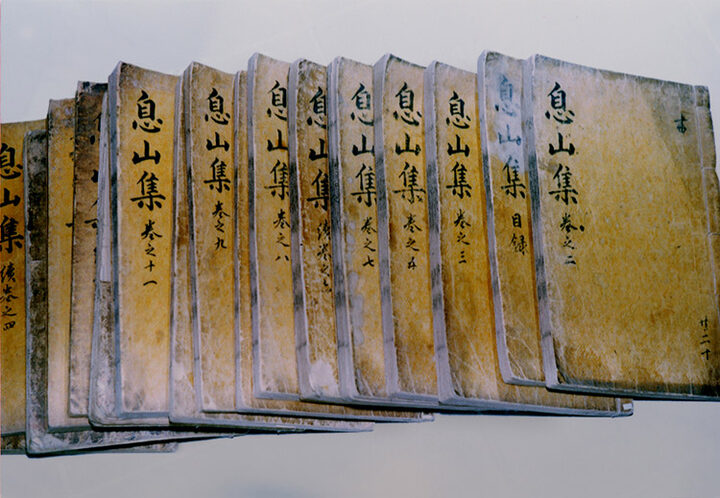 息山集 卷之二
息山集 目錄
息山集 卷之三
息山集 卷之五
息山集 卷之七
息山集 續卷之
息山集 卷之八
息山集 卷之九
息山集 卷之十一
息山集 續卷之四